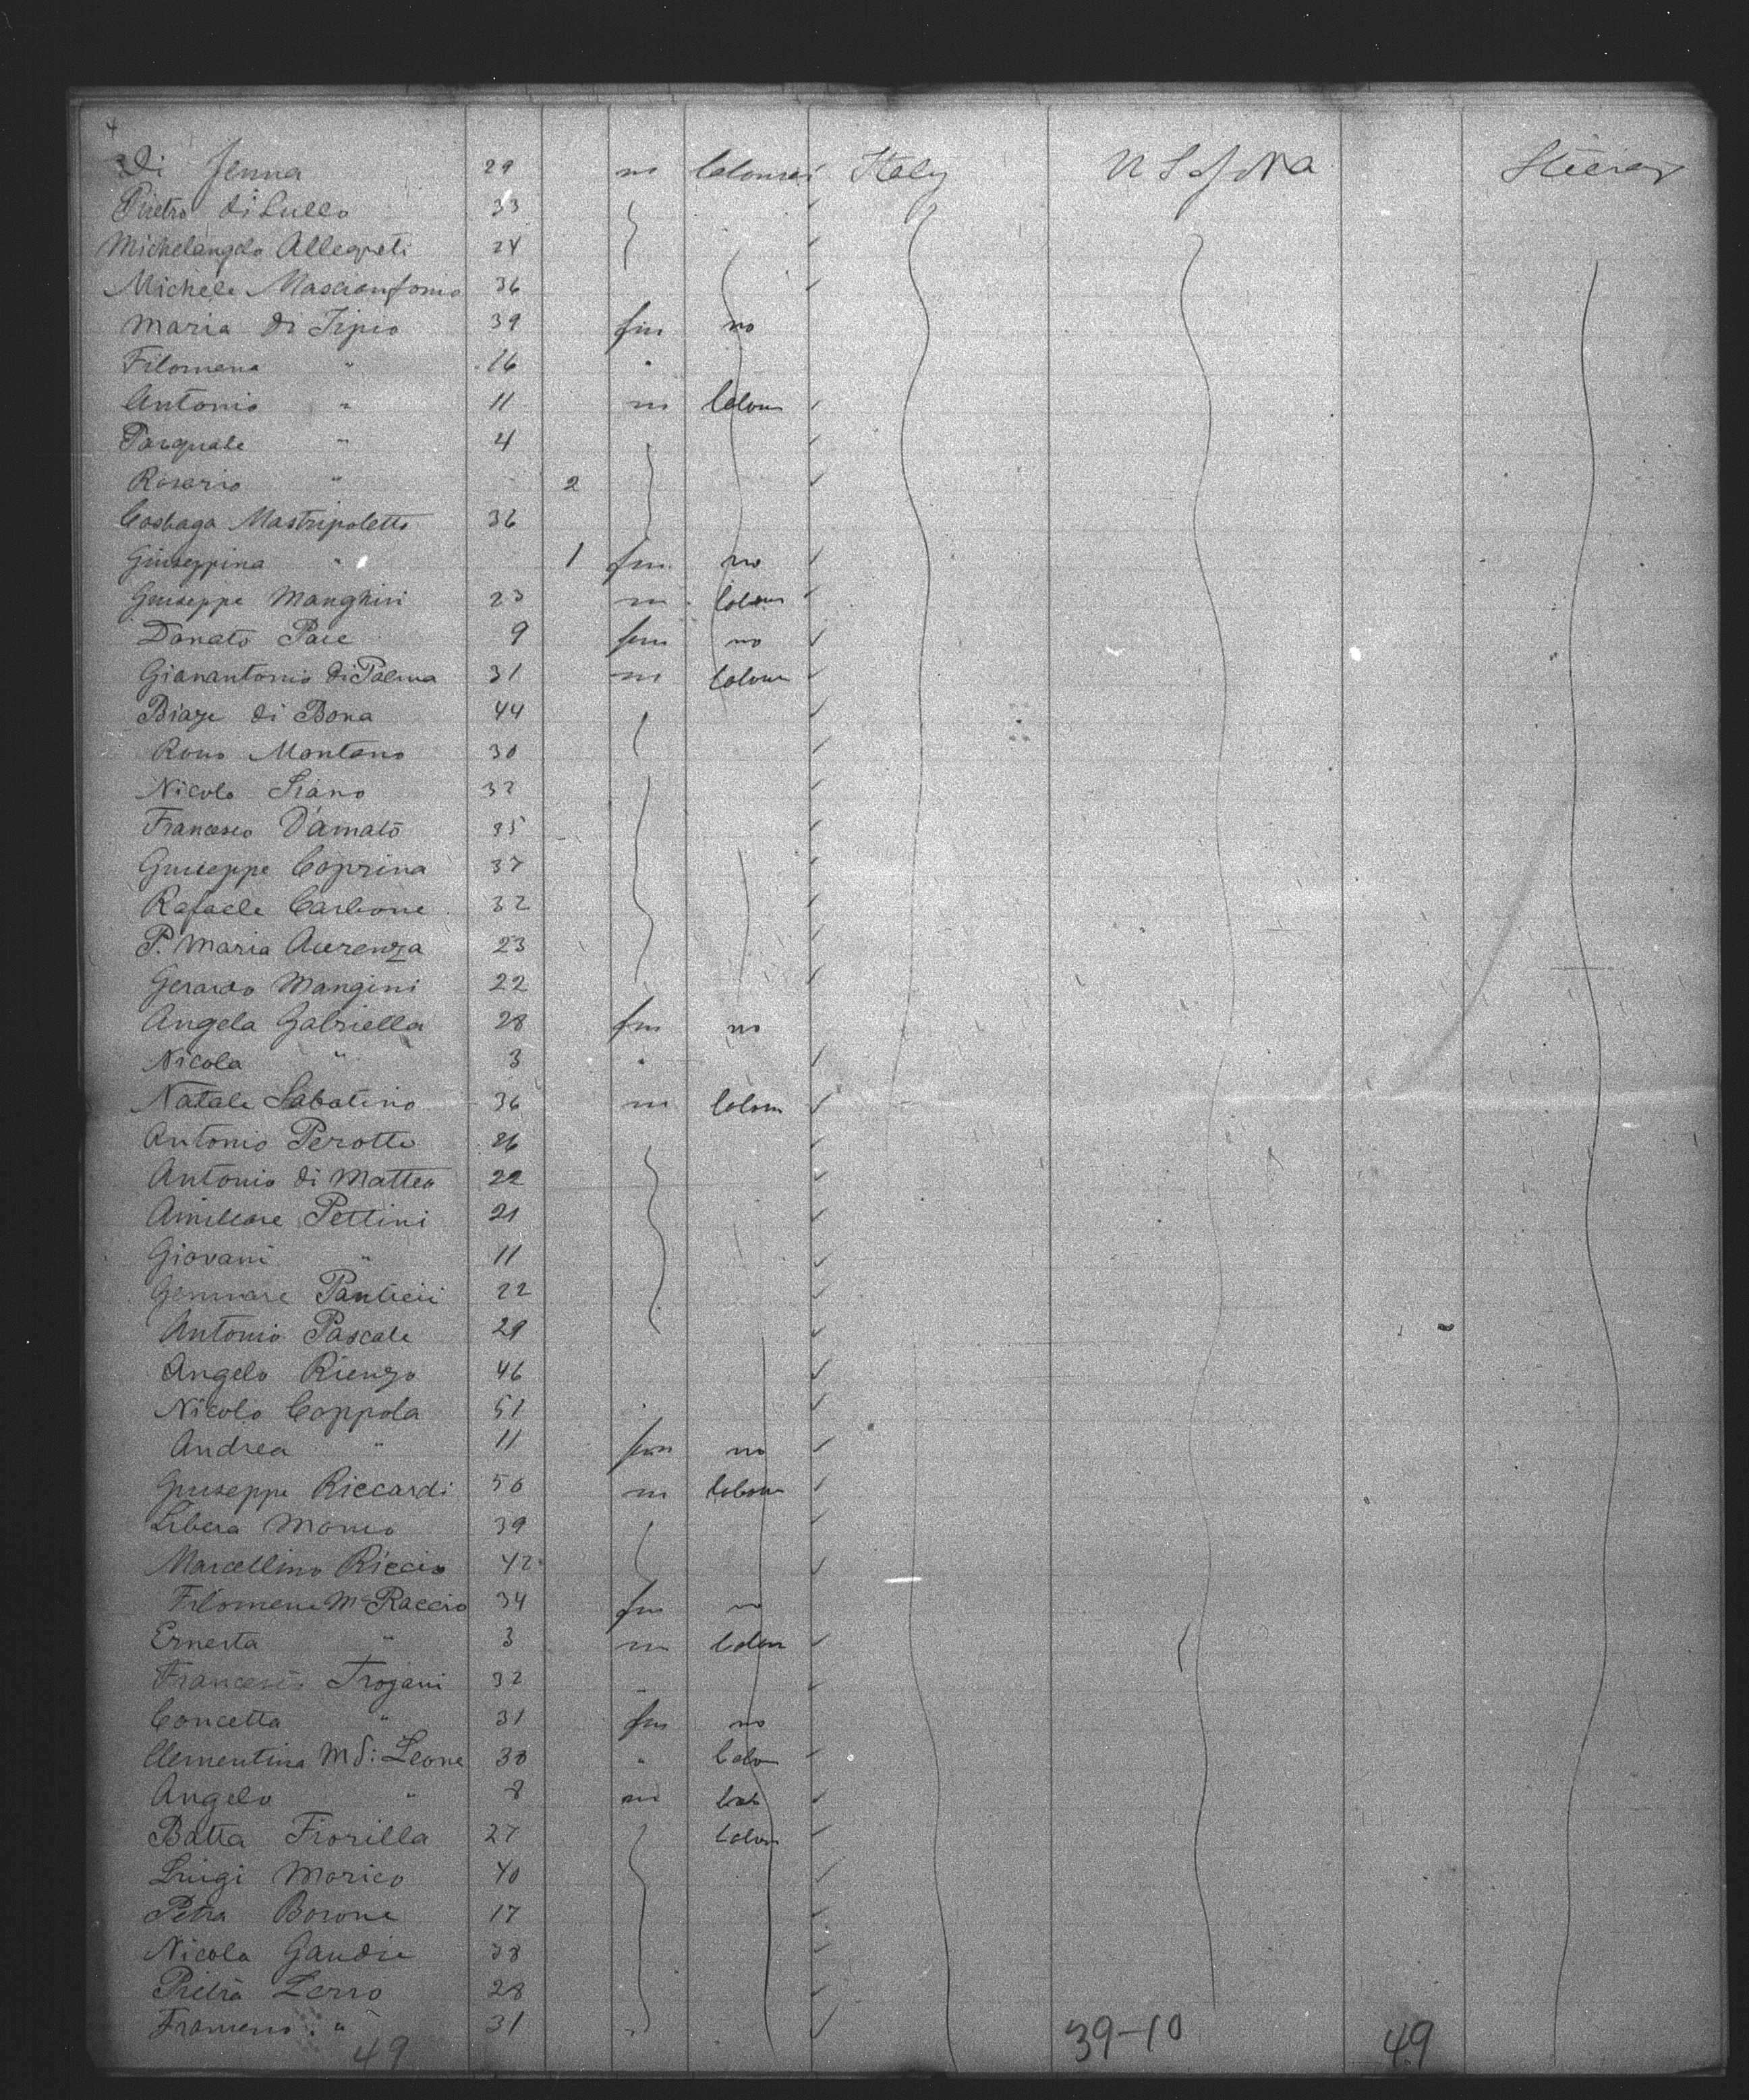 4
Di Jenna 29 m Labourer Italy U S of N A Steerage
Pietro di Lullo 33
Michelangelo Allegreti 24
Michele Masciantonio 36
Maria di Tipio 39 fm no
Filomena " 16 "
Antonio " 11 m labour
Pasquale " 4
Rosario " 2
Mastripoletto 36
Giuseppina " 1 fm no
Giuseppe Manghini 23 m labour
Donato Pace 9 fem no
Gianantonio di Palma 31 m labour
Biaze di Bona 44
Montano 30
Nicolo Siano 32
Francesco D'amato 35
Giuseppe Coprina 37
Rafaele Carbone 32
P. Maria Acerenza 23
Gerardo Mangini 22
Angela Gabriella 28 fm no
Nicola " 3 "
Natale Sabatino 36 m labour
Antonio Perotte 26
Antonio di Matteo 22
Amileare Pettini 21
Giovani " 11
Gennare 22
Antonio Pascale 29
Angelo Rienzo 46
Nicolo Coppola 51
Andrea " 11 fem no
Giuseppe Riccardi 50 m labour
Libera Monco 39
Marcellino Riccio 42
Filomena Mc Raccio 34 fm no
Ernesta " 3 m labour
Trojani 32
Concetta " 31 fm no
Clementina M di Leone 30 " labo
Angelo " 8 m lab
Batta Fiorilla 27 labour
Luigi Morico 40
Petra Borone 17
Nicola Gaudie 38
Pietra Lerro 28
" 31
49 39-10 49